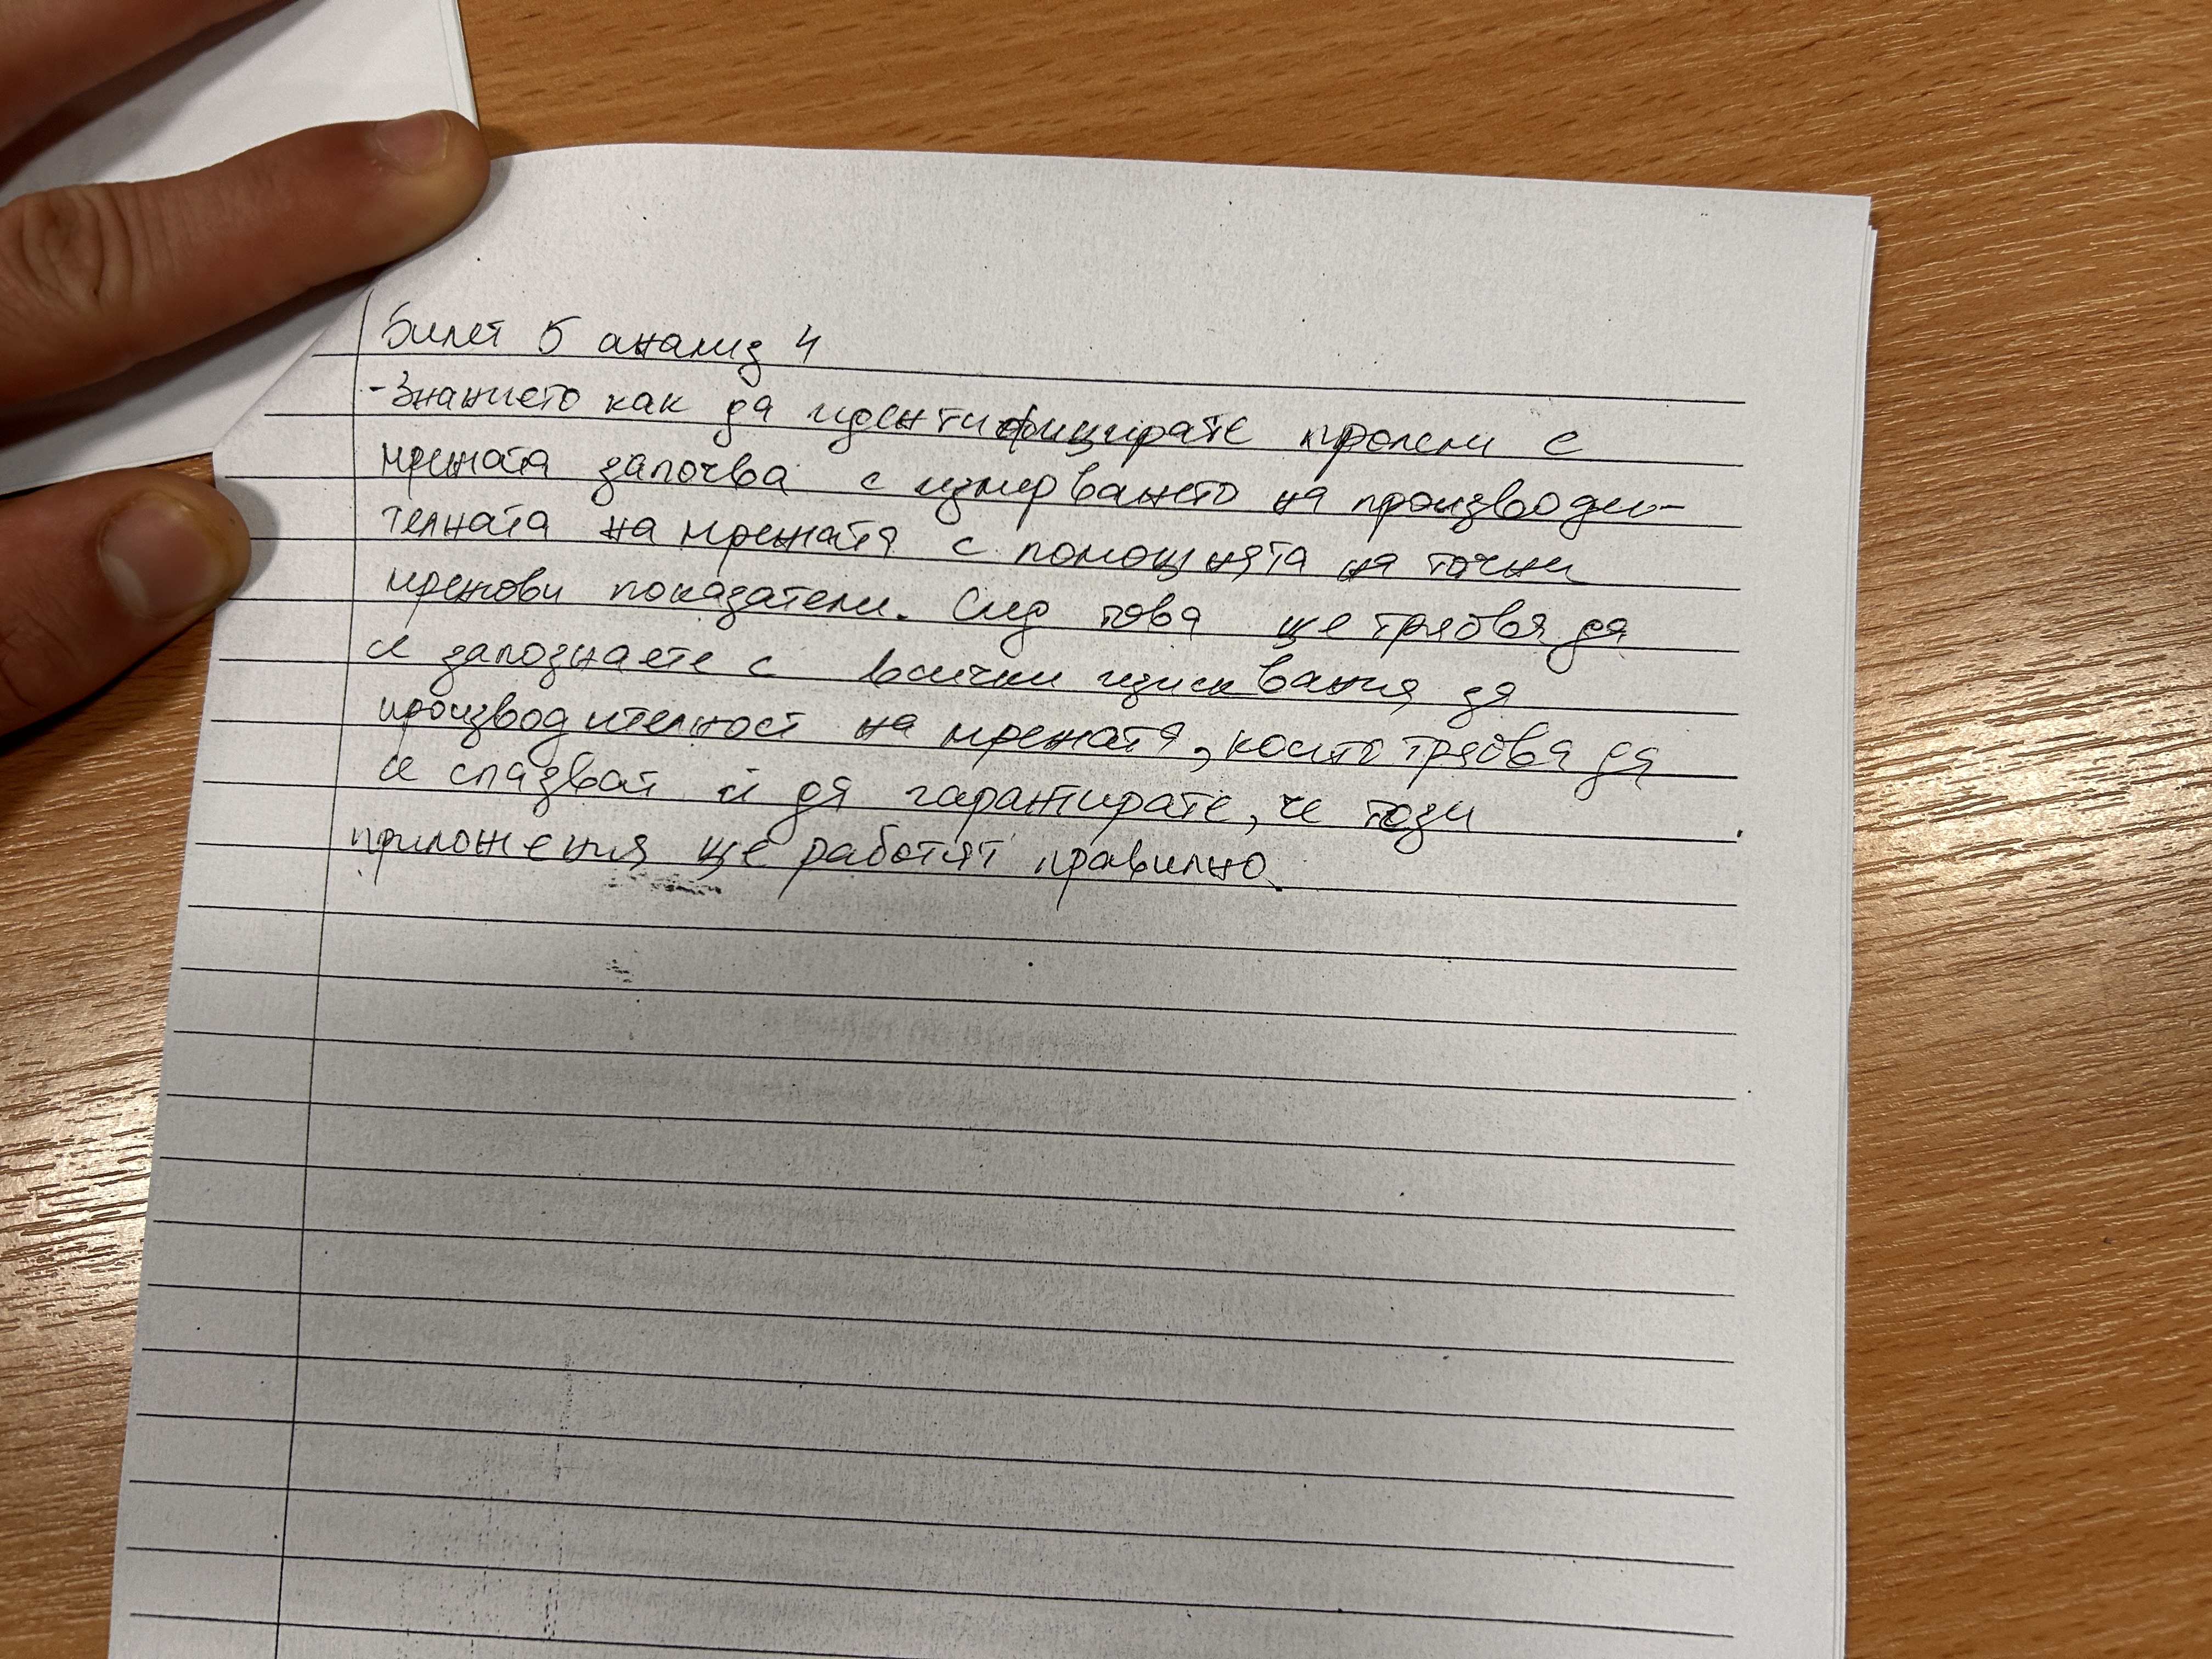 Билет 5 анализ 4
-Знанието как да идентифицирате пролеми с
мрежата започва с измерването на производи-
телната на мрежата с помощната на точни
мрежови показатели. След това ще трябва да
се запознаете с всички изисквания за
производителност на мрежата, които трябва да
се спазват и да гарантирате, че този
приложения ще работят правилно.